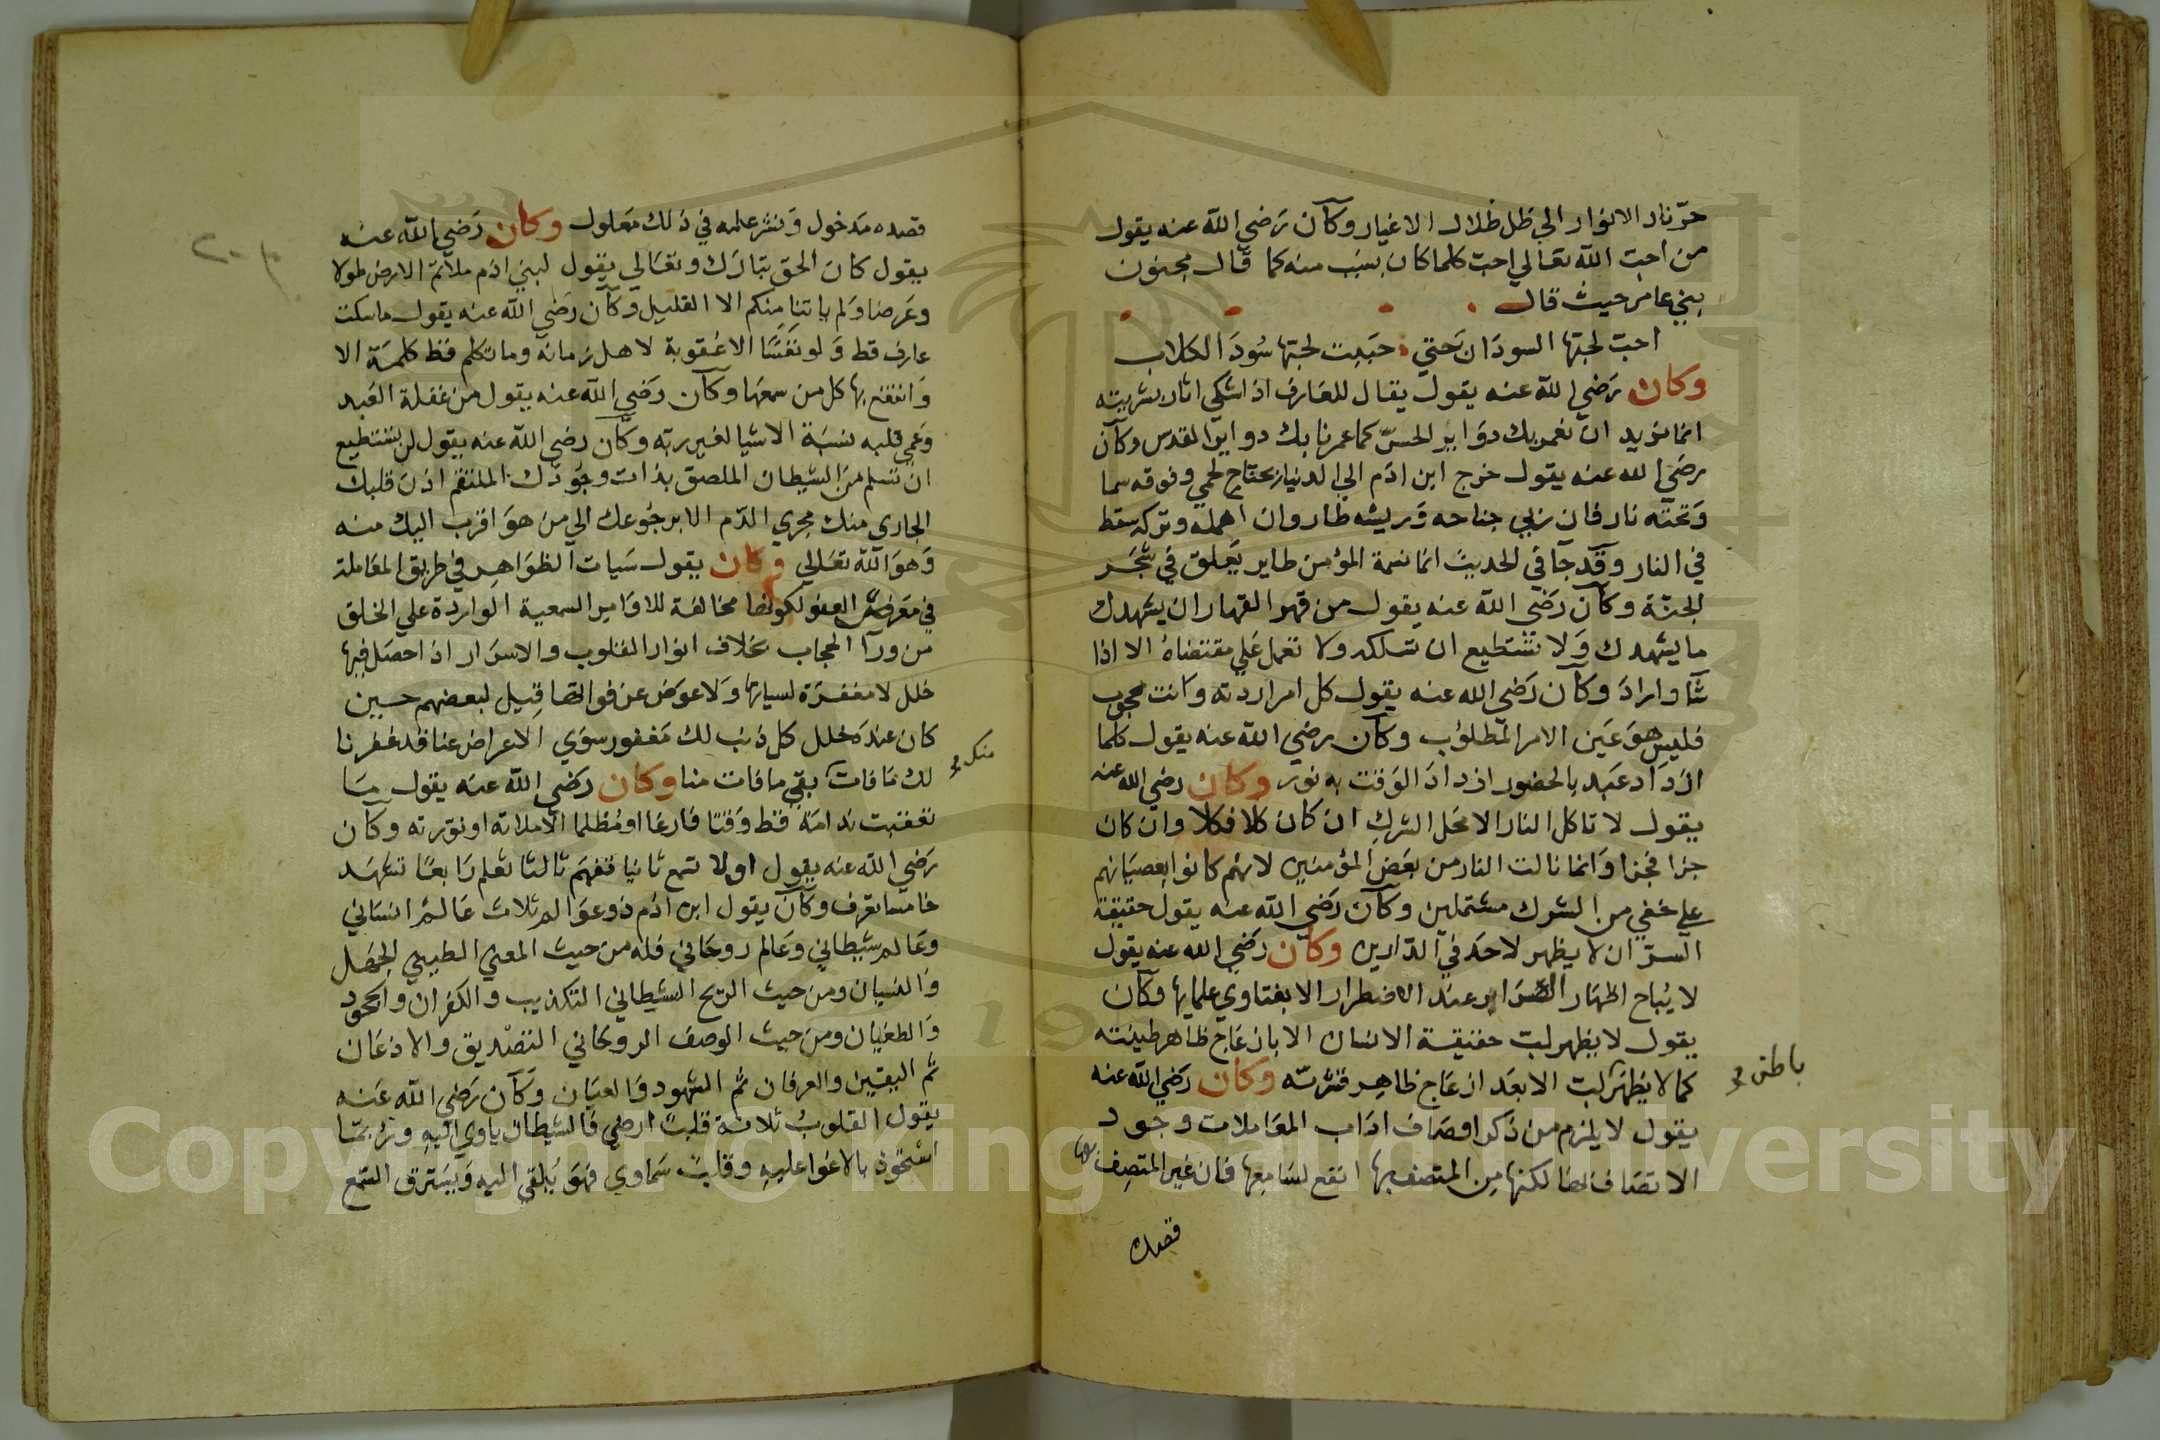 حرّ نار الانوار الي ظل ظلال الاغيار وكان رضي الله عنه يقول
من احب الله تعالي احب كلما كان بسبب منه كما قال مجنون
بني عامر حيث قال
احب لحبها السودان حتي حببت لحبها سُودَ الكلاب
وكان رضي الله عنه يقول يقال للعارف اذا شكي اثار بشريته
انما نريد ان نعمر بك دواير الحسّ كما عمرنا بك دواير القدس وكان
رضي الله عنه يقول خرج ابن ادم الي الدنيا بجناح لحمي وفوقه سما
وتحته نار فان ربي جناحه وريشه طار وان اهمله وتركه سقط
في النار وقد جا في الحديث انما نسمة المؤمن طاير يعلق في شجر
الجنة وكان رضي الله عنه يقول من قهر القهار ان يشهدك
ما يشهدك ولا تستطيع ان تسلكه ولا تعمل علي مقتضاه الا اذا
شا واراد وكان رضي الله عنه يقول كل امر اردته وانت محجوب
فليس هو عين الامر المطلوب وكان رضي الله عنه يقول كلما
ازداد عبد بالحضور ازداد الوقت به نور وكان رضي الله عنه
يقول لا تاكل النار الا محل الشرك ان كان كلا فكلا وان كان
جزا فجزا وانما نالت النار من بعض المؤمنين لانهم كانوا بعصيانهم
علي خفي من الشرك مشتملين وكان رضي الله عنه يقول حقيقة
السرّ ان لا يظهر لاحد في الدارين وكان رضي الله عنه يقول
لا يُباح اظهار السراير عند الاضطرار الا بفتاوي علمايها وكان
يقول لا يظهر لبّ حقيقة الانسان الا بانزعاج ظاهر طينته
كما لا يظهر لب الا بعد انزعاج ظاهر قشرته وكان رضي الله عنه
باطن
يقول لا يلزم من ذكر اوصاف اداب المعاملات وجود
الاتصاف بها لكنها من المتصف بها انفع لسامعها فان غير المتصف بها
قصده
قصده مدخول ونشر علمه في ذلك معلول وكان رضي الله عنه
يقول كان الحق تبارك وتعالي يقول لبني ادم ملاتم الارض طولا
وعرضا ولم ياتنا منكم الا القليل وكان رضي الله عنه يقول ما سكت
عارف قط ولو نفسًا الا عقوبة لاهل زمانه وما تكلم قط كلمة الا
وانتفع بها كل من سمعها وكان رضي الله عنه يقول من غفلة العبد
وعمي قلبه نسبة الاشيا لغير ربه وكان رضي الله عنه يقول لن تستطيع
ان تسلم من الشيطان الملصق بذات وجودك الملتقم اذن قلبك
الجاري منك مجري الدم الا برجوعك الي من هو اقرب اليك منه
وهو الله تعالي وكان يقول سيات الظواهر في طريق المعاملة
في معرض العفو لكونها مخالفة للاوامر السمعية الواردة علي الخلق
من ورآ الحجاب بخلاف انوار القلوب والاسرار اذا حصل فيها
خلل لا مغفرة لسياتها ولا عوض عن فواتها قيل لبعضهم حين
كان عنده خلل كل ذنب لك مغفور سوي الاعراض عنا قد غفرنا
منك
لك ما فات بقي ما فات منا وكان رضي الله عنه يقول ما
تعقبت ندامة قط وقتا فارغا او مظلما الا ملاته او نورته وكان
رضي الله عنه يقول اولا تسمع ثانيا تفهم ثالثا تعلم رابعا تشهد
خامسا تعرف وكان يقول ابن ادم ذو عوالم ثلاث عالم انساني
وعالم شيطاني وعالم روحاني فله من حيث المعني الطيني الجهل
والنسيان ومن حيث الريح الشيطاني التكذيب والكفران والجحود
والطغيان ومن حيث الوصف الروحاني التصديق والاذعان
ثم اليقين والعرفان ثم الشهود والعيان وكان رضي الله عنه
يقول القلوب ثلاثة قلب ارضي فالشيطان ياوي اليه وربما
استحوذ بالاغوا عليه وقلب سماوي فهو يُلقي اليه ويسترق السمع
Copyright © King Saud University